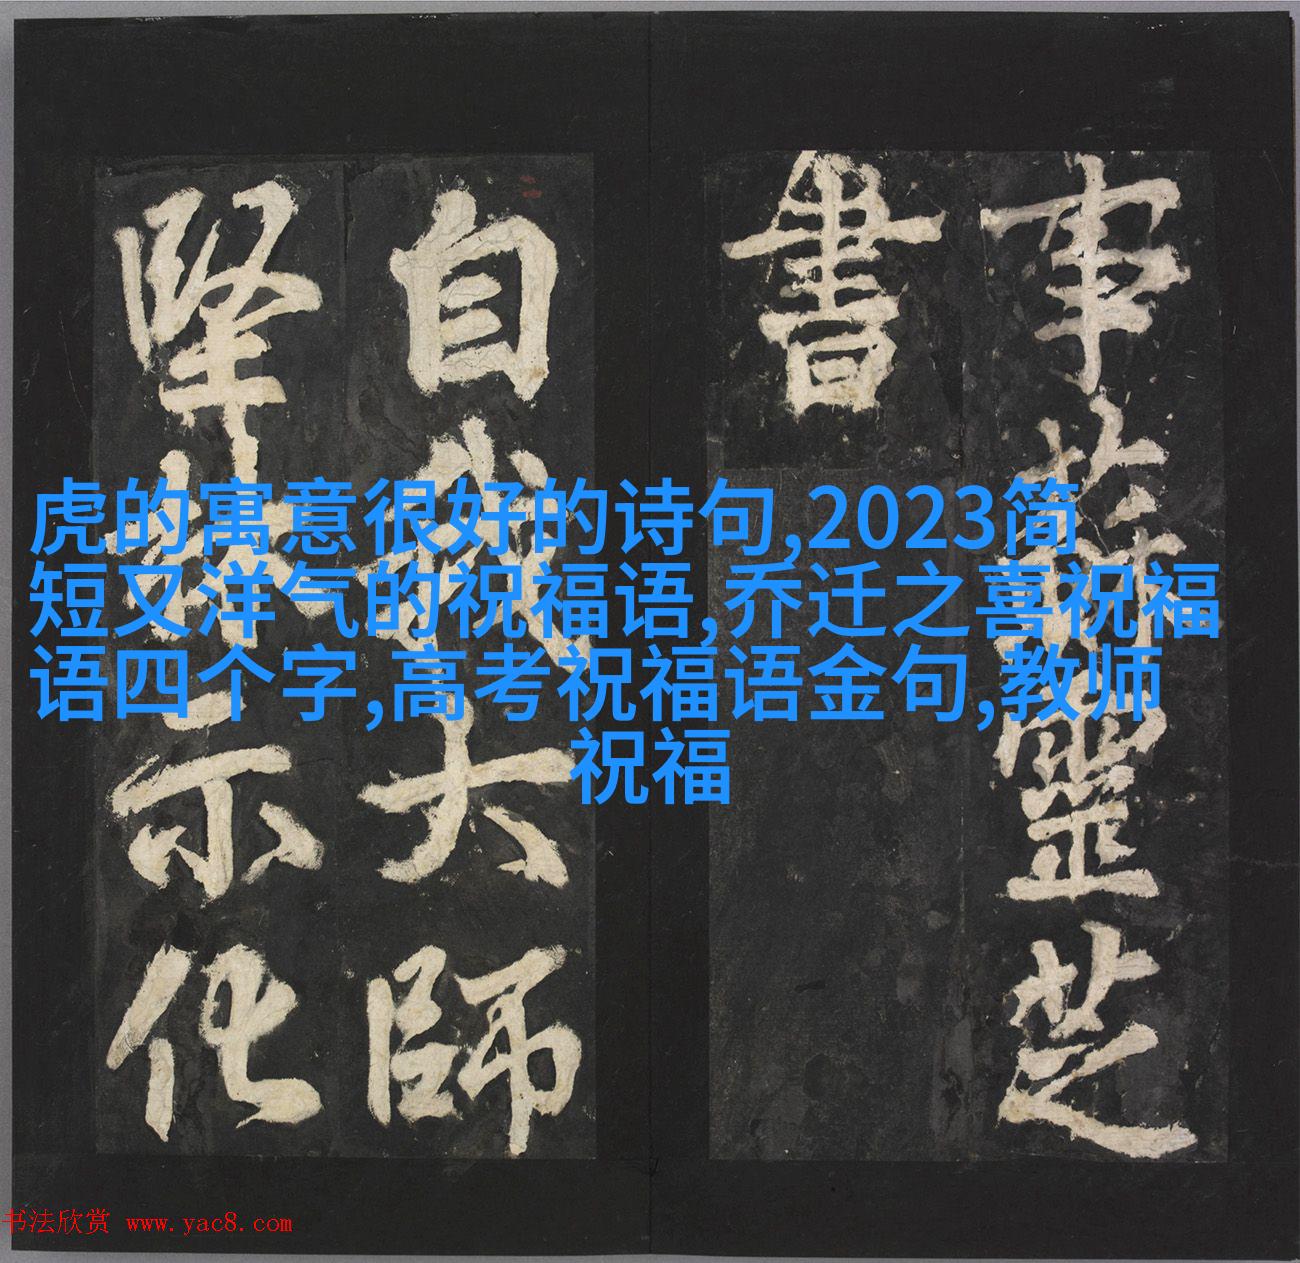 事蘇靈芝
書
自我大師
堅林示化
虎的寓意很好的诗句,2023简
短又洋气的祝福语,乔迁之喜祝福
语四个字,高考祝福语金句,教师
祝福
书法欣赏 www.yac8.com